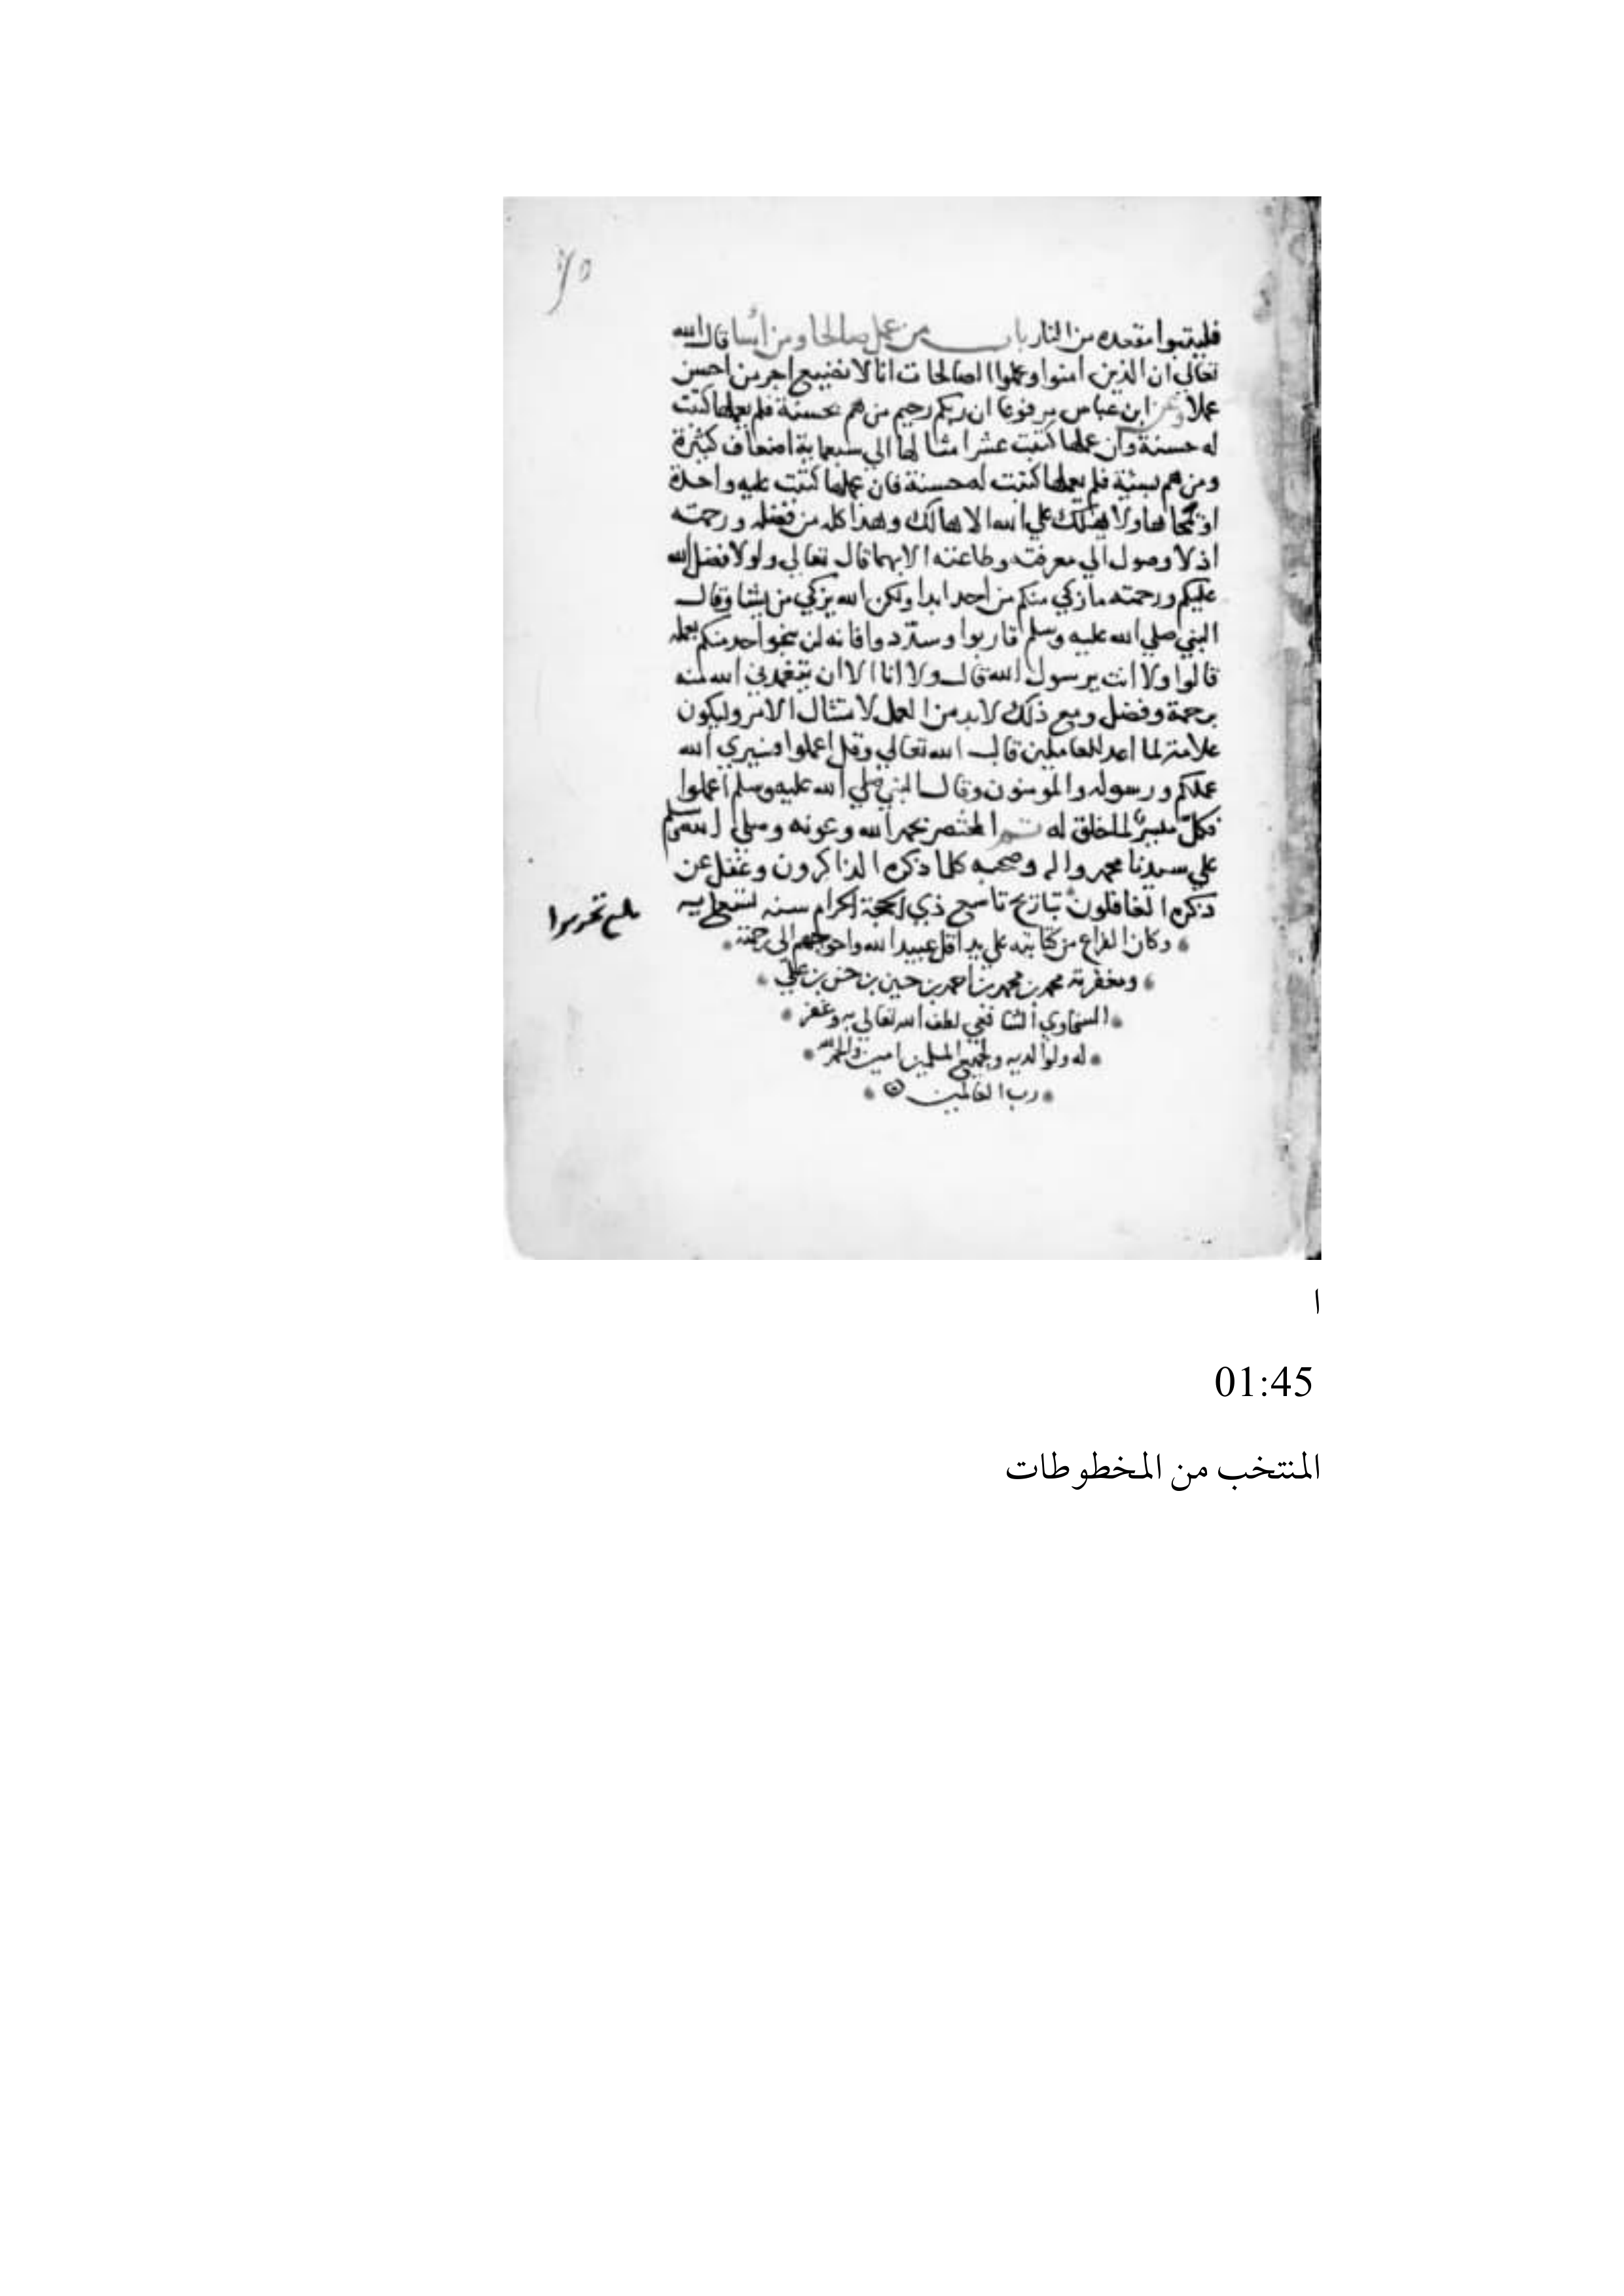 فليتبوا مقعده من النار باب من عمل صالحا ومن اسا قال الله
تعالي ان الذين امنوا وعملوا الصالحات انا لا نضيع اجر من احسن
عملا وعن ابن عباس مرفوعا ان ربكم رحيم من هم بحسنة فلم يعملها كتبت
له حسنة وان عملها كتبت عشرا مثالها الي سبعماية اضعاف كثيرة
ومن هم بسيئة فلم يعملها كتبت له حسنة فان عملها كتبت عليه واحدة
او محاها ولا يهلك علي الله الا هالك وهذا كله من فضله ورحمته
اذ لا وصول الي معرفته وطاعته الا بهما قال تعالي ولولا فضل الله
عليكم ورحمته ما زكي منكم من احد ابدا ولكن الله يزكي من يشا وقال
النبي صلي الله عليه وسلم قاربوا وسددوا فانه لن ينجوا احد منكم بعمله
قالوا ولا انت يرسول الله قال ولا انا الا ان يتغمدني الله منه
برحمة وفضل ومع ذلك لا بد من العمل لامتثال الامر وليكون
علامة لما اعد للعاملين قال الله تعالي وقل اعملوا فسيري الله
عملكم ورسوله والمومنون وقال النبي صلي الله عليه وسلم اعملوا
فكل ميسر لما خلق له تم المختصر بحمد الله وعونه وصلي الله وسلم
علي سيدنا محمد واله وصحبه كلما ذكره الذاكرون وغفل عن
ذكره الغافلون بتاريخ تاسع ذي الحجة الحرام سنه تسعمايه
بلغ تحريرا
وكان الفراغ من كتابته علي يد اقل عبيد الله واحوجهم الى رحمته
ومغفرته محمد بن محمد بن احمد بن حسين بن حسن بن علي
السخاوي الشافعي لطف الله تعالي به وغفر
له ولوالديه ولجميع المسلمين امين والحمد لله
رب العالمين
ا
01:45
المنتخب من المخطوطات